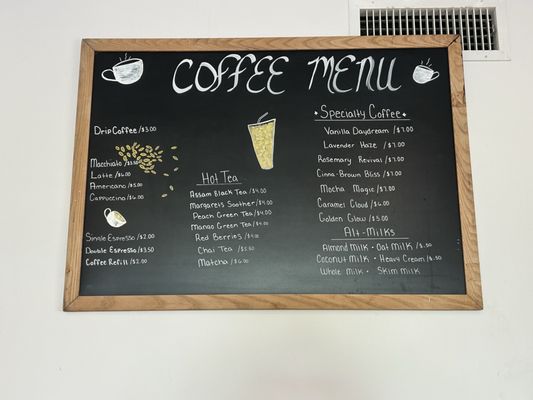 COFFEE MENU
Drip Coffee /$3.00
Macchiato /$3.50
Latte /$6.00
Americano /$5.00
Cappuccino /$6.00
Single Espresso /$2.00
Double Espresso /$3.50
Coffee Refill /$2.00
Hot Tea
Assam Black Tea /$4.00
Margarets Soother /$4.00
Peach Green Tea /$4.00
Mango Green Tea /$4.00
Red Berries /$4.00
Chai Tea /$5.50
Matcha /$6.00
Specialty Coffee
Vanilla Daydream /$7.00
Lavender Haze /$7.00
Rosemary Revival /$7.00
Cinna-Brown Bliss /$7.00
Mocha Magic /$7.00
Caramel Cloud /$6.00
Golden Glow /$5.00
Alt-Milks
Almond Milk · Oat Milk /$.50
Coconut Milk · Heavy Cream /$.50
Whole Milk · Skim Milk